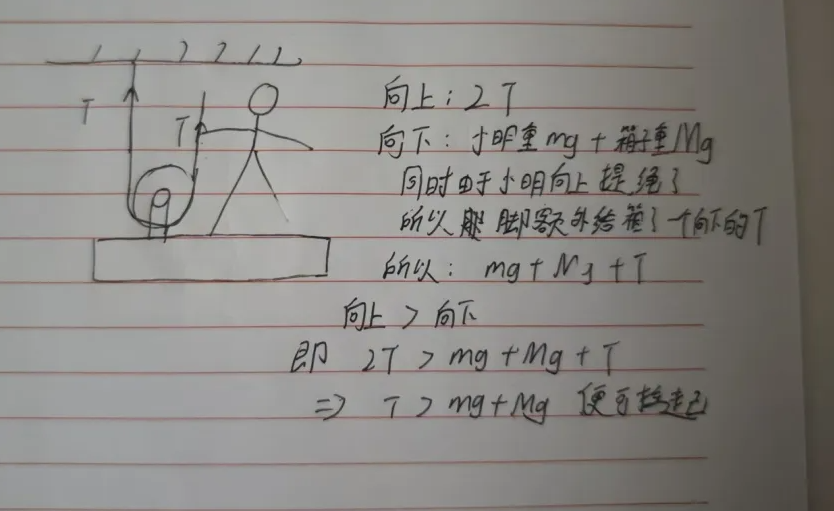 T
T
向上：2T
向下：小明重mg+箱子重Mg
同时由于小明向上提绳子
所以 脚额外给箱子一个向下的T
所以：mg+Mg+T
向上>向下
即 2T>mg+Mg+T
⇒ T>mg+Mg 便可拉起